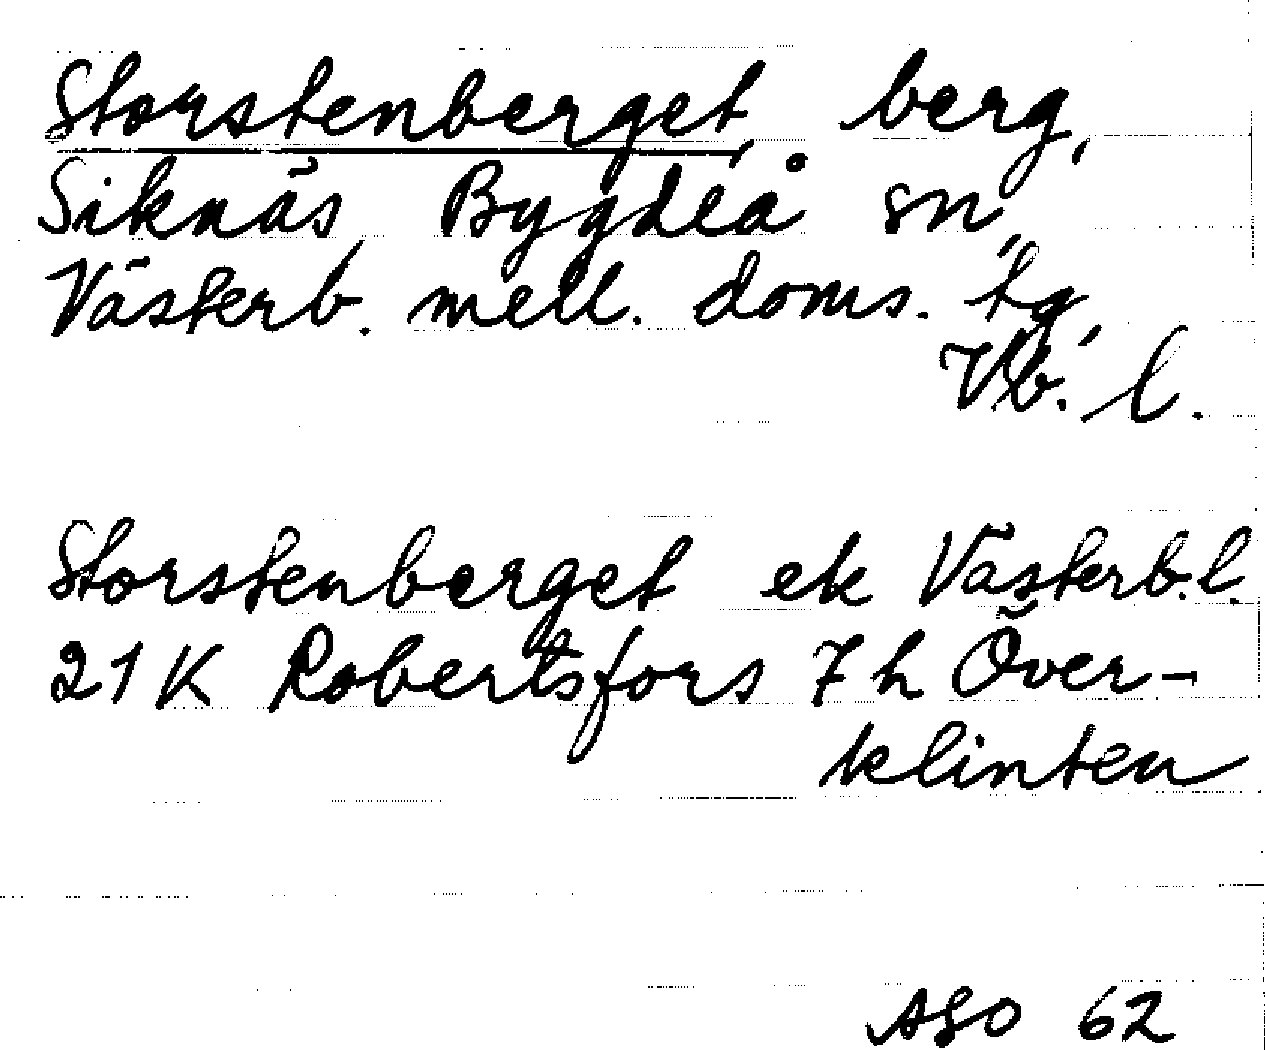 Storstenberget, berg,
Siknäs, Bygdeå sn,
Västerb. mell. doms. tg,
Vb. l.
Storstenberget ek Västerb. l.
21 K Robertsfors 7 h Över-
klinten
ASO 62